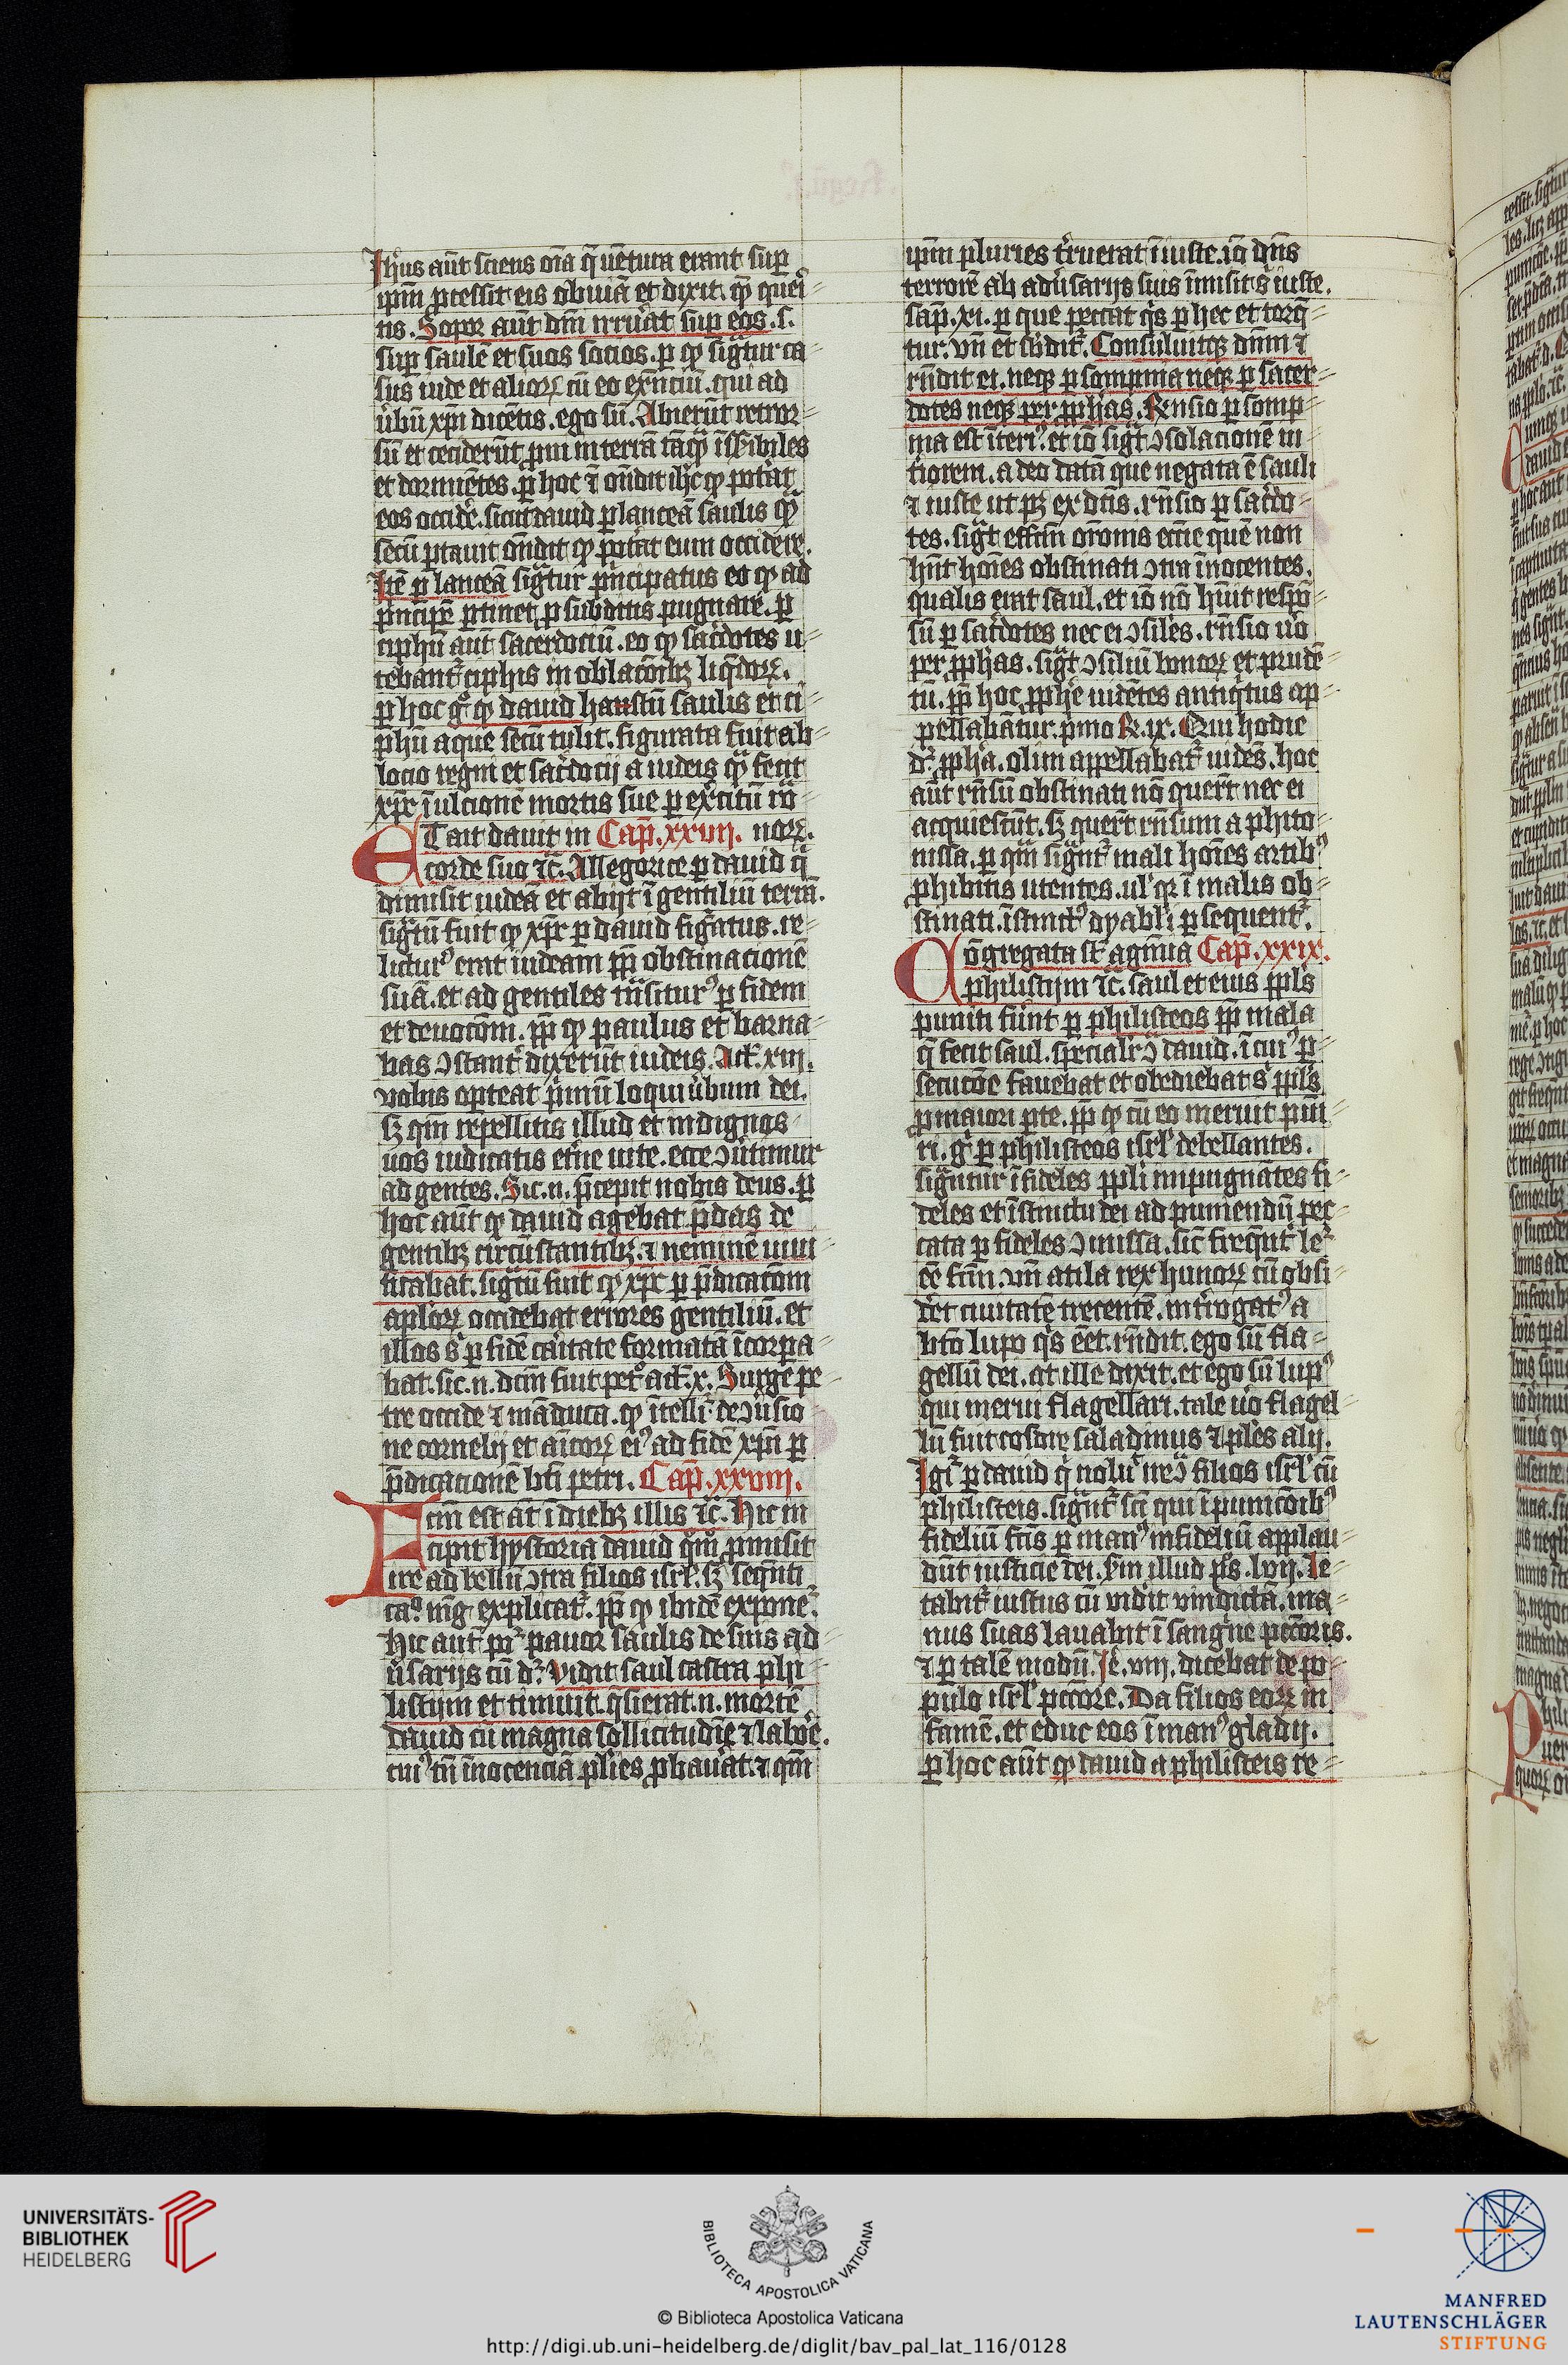 Ihūs aūt sciens oīa q̄ uētura erant sup̄
ip̄m p̱cessit eis obuiā et dixit. qp̄ queri-
tis. Sopor aūt dm̄ irruˀat sup̱ eos .s.
sup̱ saulē et suos socios. p̱ qp̄ sig̃tur ca-
sus iude et alioꝝ cū eo exn̄ciū. qui ad
ūbū xp̄i dicētis. ego sū. Abierūt retror-
sū et ceciderūt p̱ni in terrā tāqᷓ īsēsibiles
et dormiētes. p̱ hoc ⁊ oñdit ihc̄ qp̄ potˀat
eos occidˀe. sicut dauid p̱ lanceā saulis qᷓ
secū portauit oñdit qp̄ potˀat eum occidere.
Itē p̱ lanceā sig̃tur p̄ncipatus eo qp̄ ad
p̄ncipē p̱tinet p̱ subditis pugnare. p̱
ciphū aūt sacerdociū. eo qp̄ sacˀdotes u-
tebant᷑ ciphis in oblacōibꝫ liq̄doꝝ.
p̱ hoc gͦ qp̄ dauid hastū saulis et ci-
phū aque secū tulit. figurata fuit ab-
lacio regni et sacˀdocij a iudeis qᷓ fecit
xp̄c ī ulcionē mortis sue p̱ exˀcitū ro-
ET ait dauit in Cap̄. xxvij. noꝝ.
corde suo ⁊c̄. Allegorice p̱ dauid q̄
dimisit iudeā et abijt ī gentiliū terrā.
sig̃tū fuit qp̄ xp̄c p̱ dauid fig̃atus. re-
licturꝰ erat iudeam pp̄ obstinacionē
suā. et ad gentiles trāsiturꝰ p̱ fidem
et deuocōm. pp̄ qp̄ paulus et barna-
bas ɔstantˀ dixerūt iudeis. Act. xiij.
vobis oporteat p̄mū loqui ūbum dei.
sꝫ qm̄ repellitis illud et indignos
uos iudicatis etˀne uite. ecce ɔūtimur
ad gentes. Sic .n. p̄cepit nobis deus. p̱
hoc aūt qp̄ dauid agebat p̄das de
gentibꝫ circūstantibꝫ. ⁊ neminē uiui-
ficabat. sig̃tū fuit qp̄ xp̄c p̱ p̄dicacōm
ap̄loꝝ occidebat errores gentiliū. et
illos s̄ p̱ fidē caritate formatā īcorpora-
bat. sic .n. dcm̄ fuit petͦ act. x. Surge pe-
tre occide ⁊ māduca. qp̄ ītelliˀ de ɔūsio-
ne cornelij et amicoꝝ eiꝰ ad fidē xp̄ī p̱
p̄dicacionē bt̄i petri. Cap̄. xxviij.
Fcm̄ est āt ī diebꝫ illis ⁊c̄. Hic in-
cipit hystoria dauid qūo p̱misit
ire ad bellū ɔtra filios isrl̄. sꝫ seqn̄ti
caꝰ mag̃ explicat᷑. pp̄ qp̄ ibidē expone᷑.
Hic aūt po᷑ pauor saulis de suis ad-
ūsarijs cū d᷑. vidit saul castra phi-
listijm et timuit. q̄sierat .n. mortē
dauid cū magna sollicitudīe ⁊ labōe.
cuiꝰ tn̄ īnocenciā pl̄ies p̱bauˀat. ⁊ qm̄
ip̄m pluries tˀruerat īiuste. iō dn̄s
terrorē ab adūsarijs suis īmisit s̄ iuste.
Sap̄. xi. p̱ que peccat q̄s p̱ hec et torq̄-
tur. vn̄ et s̄bdit᷑. Consuluitqꝫ dn̄m ⁊
rn̄dit ei. neqꝫ p̱ sompnia neqꝫ p̱ sacer-
dotes neqꝫ per pp̄has. Rn̄sio p̱ somp-
nia est īteriꝰ. et iō sig̃t ɔsolacionē in-
tiorem. a deo datā que negata ē sauli
⁊ iuste ut pꝫ ex dc̄is. rn̄sio p̱ sacˀdo-
tes. sig̃t effcm̄ orōnis eccīe quē non
hn̄t hoīes obstinati ɔtra īnocentes.
qualis erat saul. et iō nō hūit respō-
sū p̱ sacˀdotes nec ei ɔsiles. rn̄sio ūo
per pp̄has. sig̃t ɔsiliū bonoꝝ et prudē-
tū. pp̄ hoc pp̄he uidētes antiq̄tus ap-
pellabātur. p̄mo R. ix. Qui hodie
d᷑ pp̄ha. olim appellabat᷑ uidēs. hoc
aūt rn̄sū obstinati nō querūt nec ei
acquiescūt. sꝫ querūt rn̄sum a phito-
nissa. p̱ qm̄ sig̃nt᷑ mali hoīes artibꝰ
p̱hibitis utentes. ul̄ qr ī malis ob-
stinati. īstinctꝰ dyaboli p̱sequent᷑.
Cōgregata st̄ agmīa Cap̄. xxix.
philistijm ⁊c̄. saul et eius pp̄ls
puniti fūnt p̱ philisteos pp̄ mala
q̄ fecit saul. specialˀr ɔ dauid. ī cuiꝰ p̱-
secucōe fauebat et obediebat s̄ pp̄ls
p̱ maiori p̱te. pp̄ qp̄ cū eo meruit pūi-
ri. gͦ p̱ philisteos isrl̄ debellantes.
sig̃ntur īfideles pp̄li impugnātes fi-
deles et īstinctu dei ad puniendū pec-
cata p̱ fideles ɔmissa. sic̄ freqn̄t᷑ le᷑
eē fcm̄. vn̄ atila rex hunoꝝ cū obsi-
dˀet ciuitatē trecentē. intˀrogatꝰ a
bt̄o lupo q̄s eēt. rn̄dit. ego sū fla-
gellū dei. at ille dixit. et ego sū lupꝰ
qui merui flagellari. tale ūo flagel-
lū fuit cosdre saladinus ⁊ pl̄es alij.
Igi᷑ p̱ dauid q̄ noluˀ ire ɔ filios isrl̄ cū
philisteis. sig̃nt᷑ scī qui ī punicōibꝰ
fideliū fc̄is p̱ manꝰ infideliū applau-
dūt iusticie dei. s̄m illud ps̄. lvij. Le-
tabit᷑ iustus cū vidˀit vindictā. ma-
nus suas lauabit ī sangˀne peccōris.
⁊ p̱ talē modū. Ie. viij. dicebat de po-
pulo isrl̄ peccōre. Da filios eoꝝ in
famē. et educ eos ī manꝰ gladij.
p̱ hoc aūt qp̄ dauid a philisteis re-
UNIVERSITÄTS-
BIBLIOTHEK
HEIDELBERG
BIBLIOTECA APOSTOLICA VATICANA
© Biblioteca Apostolica Vaticana
http://digi.ub.uni-heidelberg.de/diglit/bav_pal_lat_116/0128
MANFRED
LAUTENSCHLÄGER
STIFTUNG